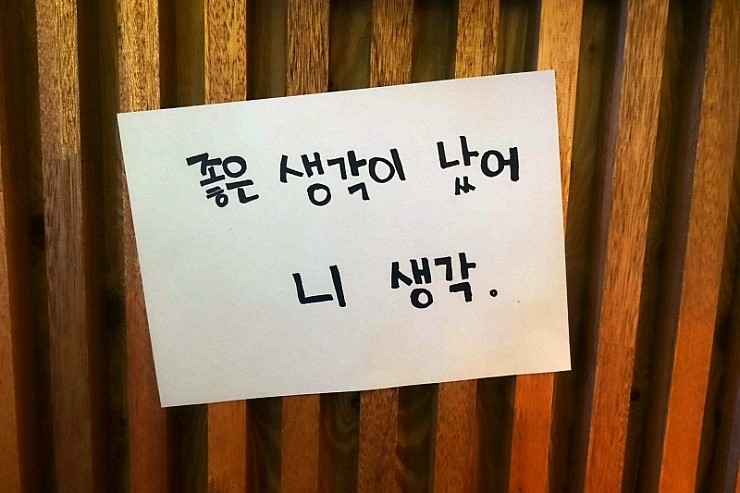 좋은 생각이 났어
니 생각.